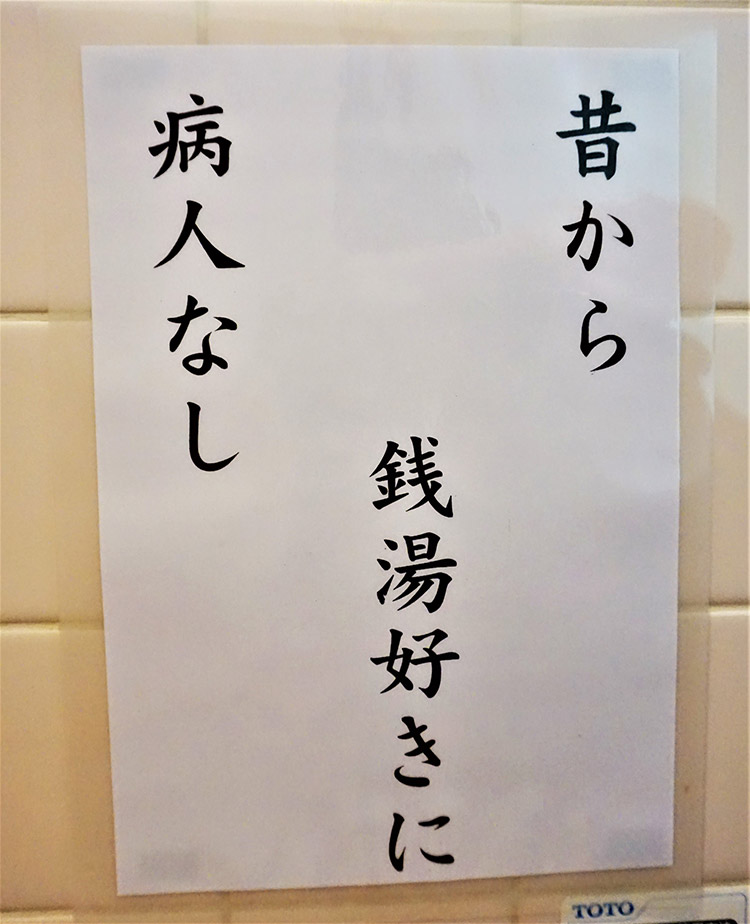 昔から
銭湯好きに
病人なし
TOTO